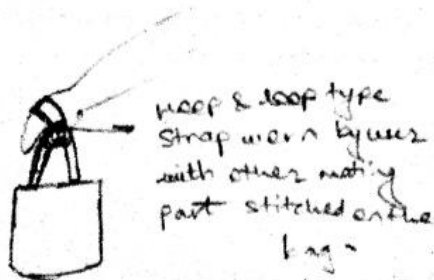 Hoop & loop type
strap worn by user
with other mating
part stitched on the
bag.